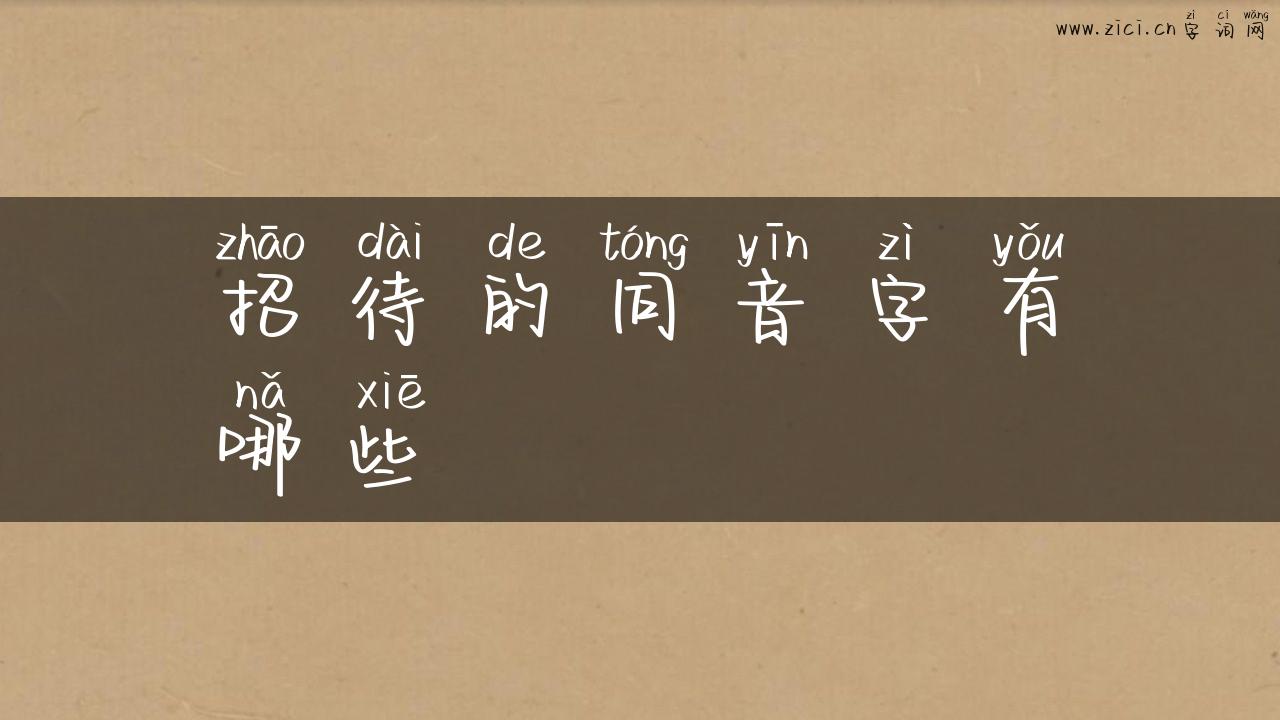 zì cí wǎng
www.zici.cn 字 词 网
zhāo dài de tóng yīn zì yǒu
招 待 的 同 音 字 有
nǎ xiē
哪 些